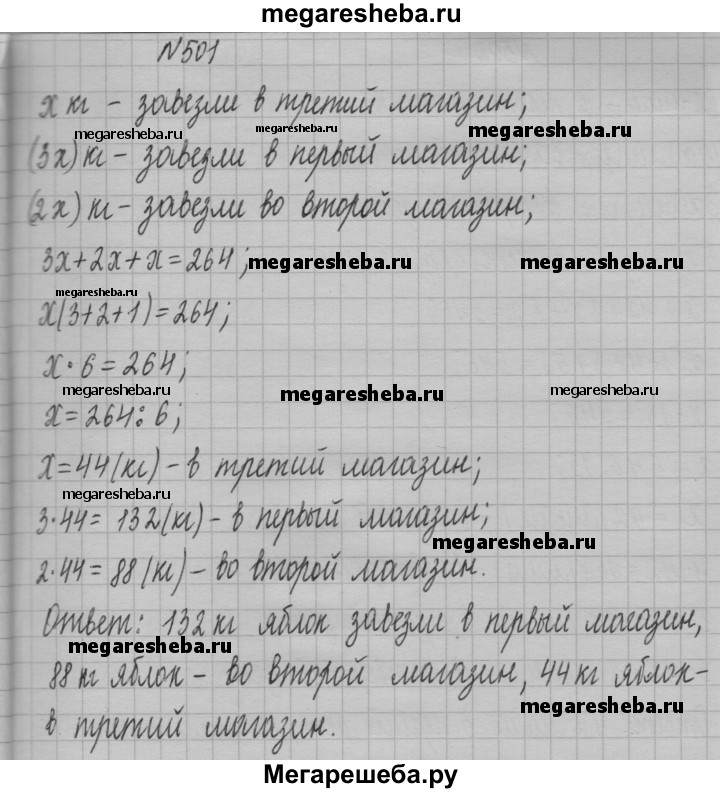 megaresheba.ru
N501
x кг - завезли в третий магазин;
megaresheba.ru megaresheba.ru megaresheba.ru
(3x) кг - завезли в первый магазин;
(2x) кг - завезли во второй магазин;
3x+2x+x=264; megaresheba.ru megaresheba.ru
megaresheba.ru
x(3+2+1)=264;
x·6=264;
megaresheba.ru megaresheba.ru megaresheba.ru
x=264:6;
x=44(кг) - в третий магазин;
megaresheba.ru
3·44=132(кг) - в первый магазин;
megaresheba.ru
2·44=88(кг) - во второй магазин.
Ответ: 132 кг яблок завезли в первый магазин,
megaresheba.ru
88 кг яблок - во второй магазин, 44 кг яблок -
megaresheba.ru
в третий магазин.
Мегарешеба.ру